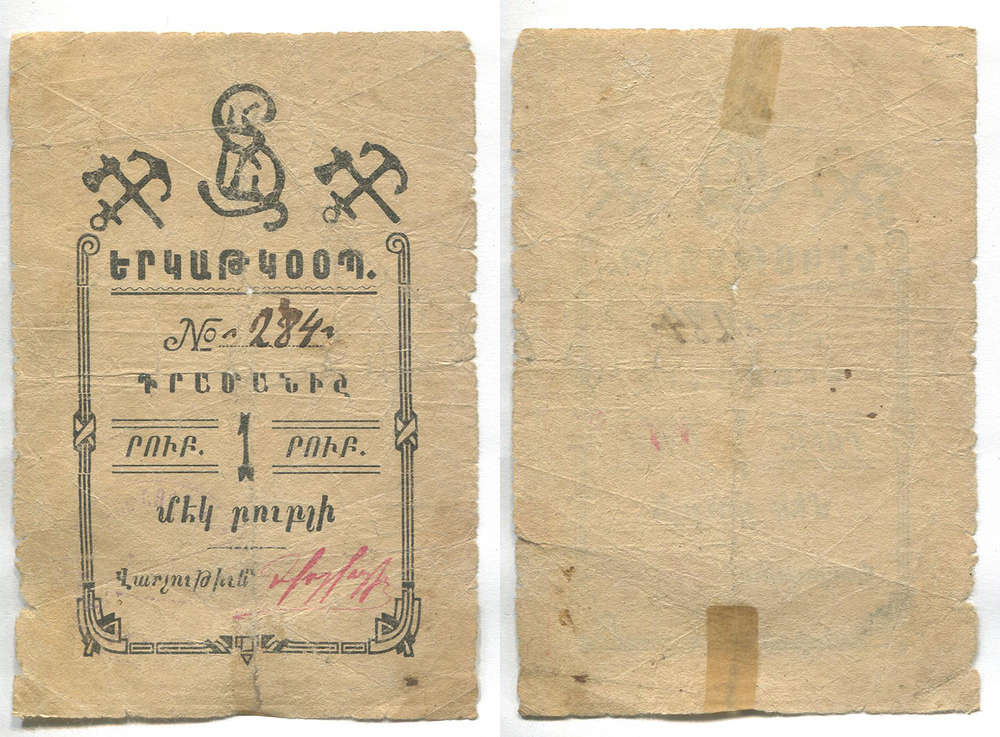 ԵՐԿԱԹԿՕՕՊ.
№ 284
ԴՐԱՄԱՆԻՇ
ՐՈՒԲ. 1 ՐՈՒԲ.
մէկ րուբլի
Վարչութիւն